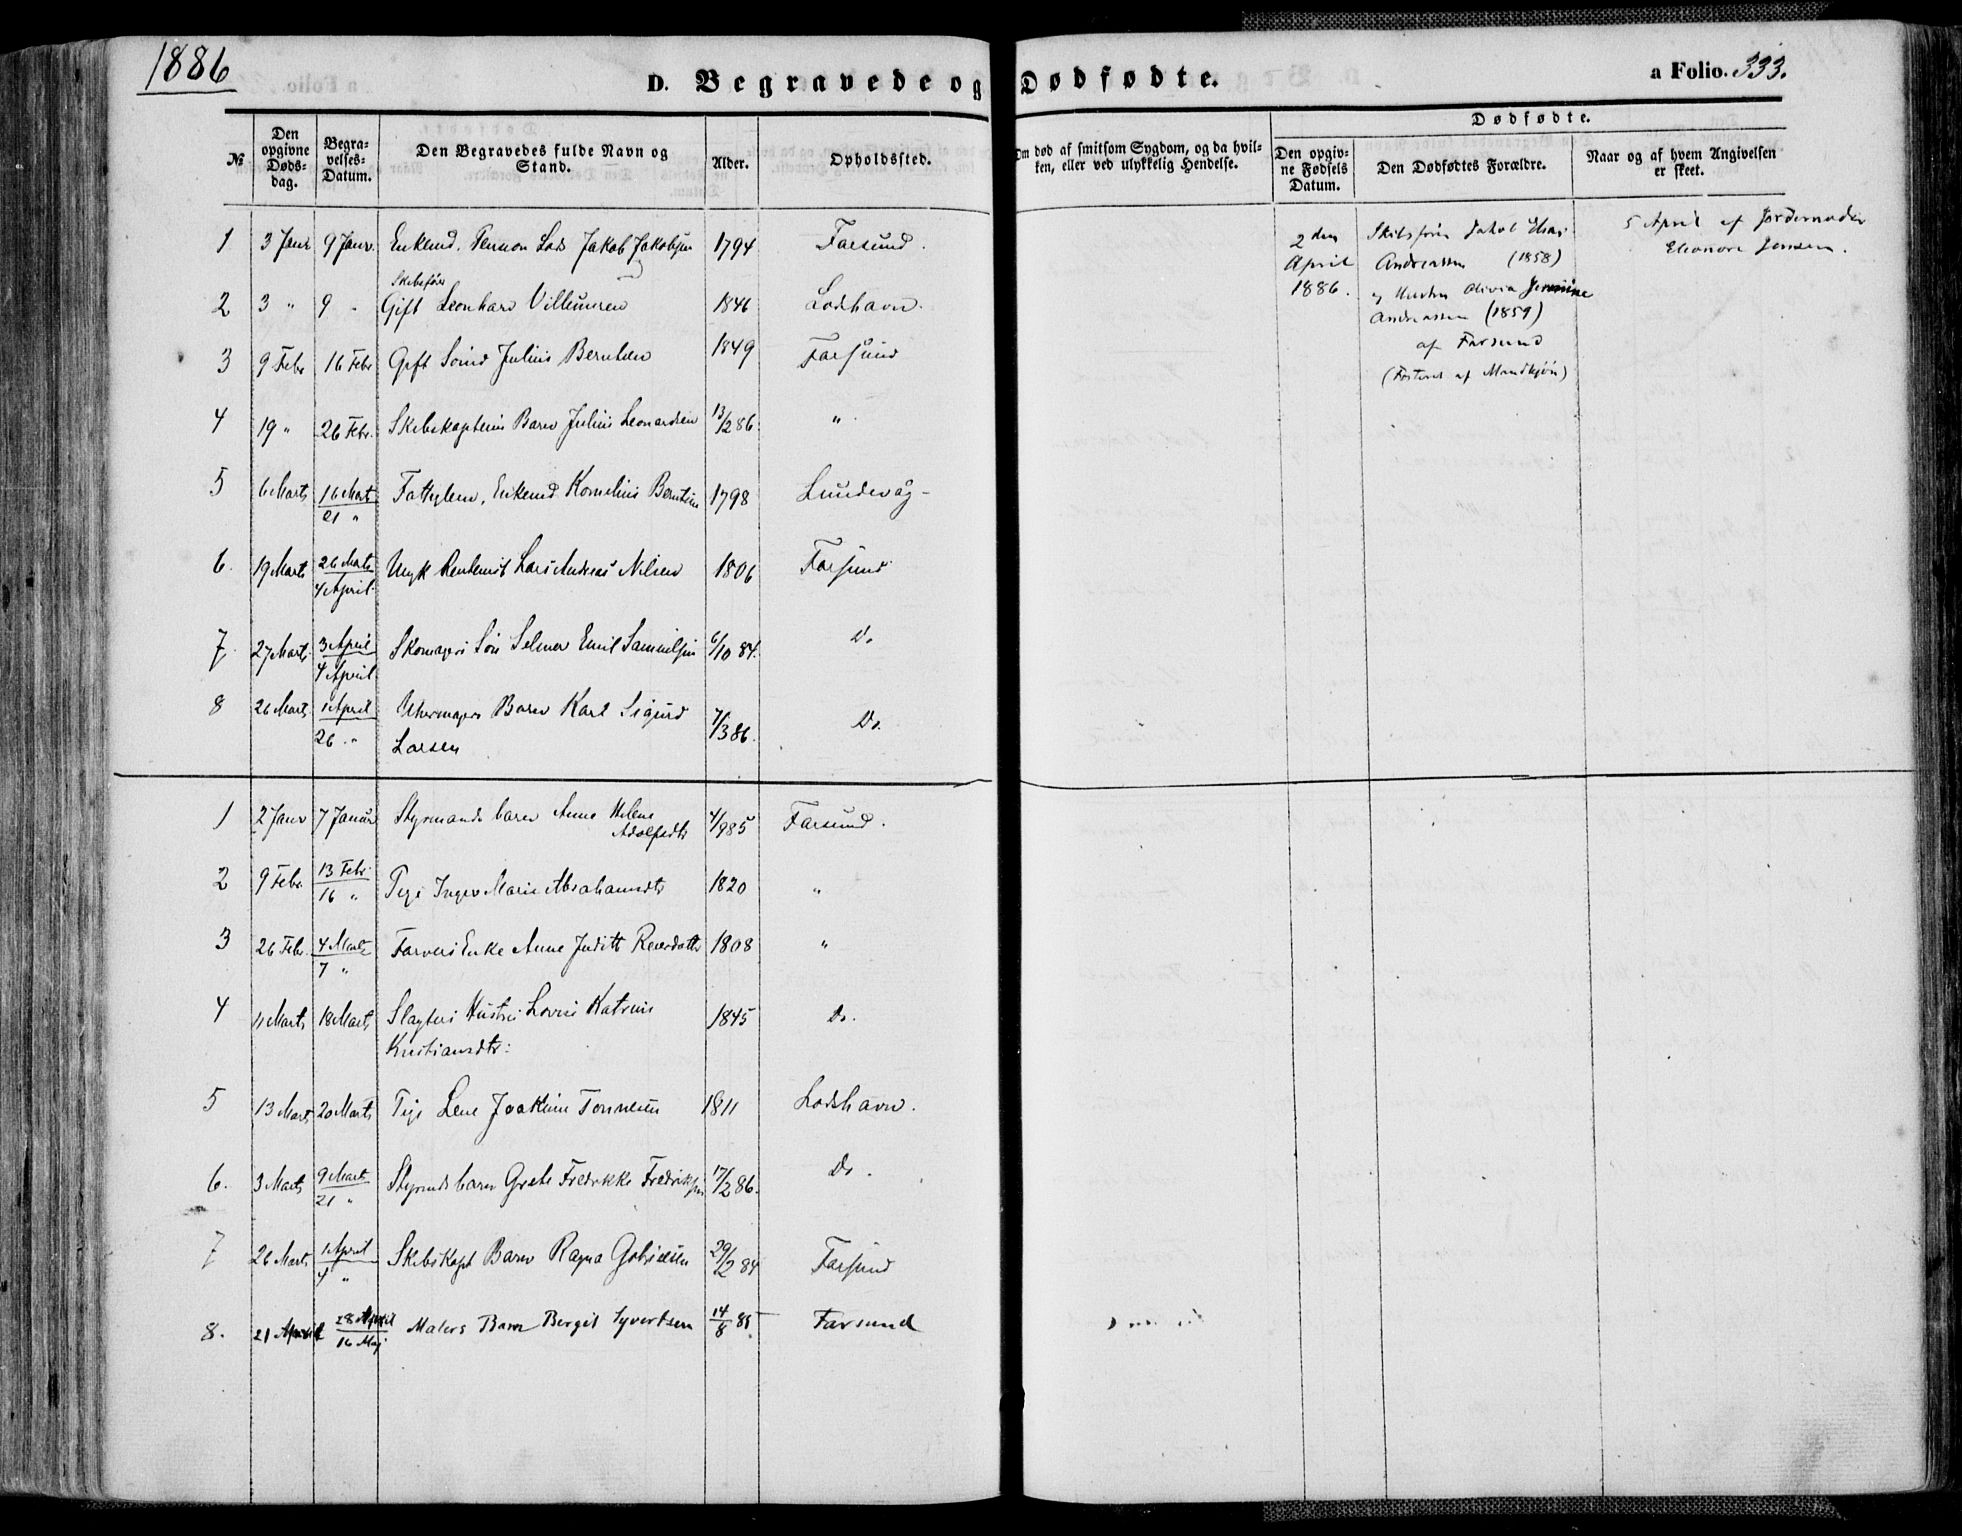 1886
D. Begravede og Dødfødte.
a Folio. 333.
No
Den opgivne Døds-dag.
Begra-velses-Datum.
Den Begravedes fulde Navn og Stand.
Alder.
Opholdssted.
Om død af smitsom Sygdom, og da hvil-
ken, eller ved ulykkelig Hendelse.
Dødfødte.
Den opgiv-ne Fødsels Datum.
Den Dødfødtes Forældre.
Naar og af hvem Angivelsen er skeet.
1 3 Janr 9 Janr. Enkemd. Lods Jakob Jakobsen 1794 Farsund.
Skibsfører
2 3 " 9 " Gift Leonhard Villumsen 1846 Lodshavn.
3 9 Febr 16 Febr Gift Julius Berntsen 1849 Farsund
4 19 " 26 Febr. Skibskapteins Barn Julius Leonardsen 13/2 86. "
5 6 Marts 16 Mart/21 " Fattiglem, Enkemd Kornelius Berntsen 1798 Lundevåg
6. 19 Marts 26 Marts/4 April Ungk Lars Andreas Nilsen 1806 Farsund
7. 27 Marts 3 April/4 April Skomagers Søn Selmer Emil Samuelsen 6/10 84. Do
8 26 Marts 1 April/26 " Uhrmagers Barn Karl Sigurd 7/3 86. Do.
Larsen
2 den April 1886.
Skibsfører Jakob Elias
Andreassen (1858)
og Hustru Olivia Jermine
Andreassen (1859)
af Farsund
(Fosteret af Mandkjøn)
5 April af Jordemoder
Eleonore Jensen.
1 2 Janr 7 Januar Styrmands barn Anne Helene 4/9 85 Farsund.
Adolfsdtr
2 9 Febr. 13 Febr/16 " Pige Inger Marie Abrahamsdtr 1820 "
3 26 Febr. 4 Marts/7 " Farvers Enke Anne Judith Reiersdatter 1808 "
4 11 Marts 18 Marts Slagters Hustru Lovise Katrine 1845 Do.
Kristiansdtr:
5 13 Mart 20 Marts Pige Lene Joakime Tønnesen 1811 Lodshavn.
6. 3 Marts 9 Marts/21 " Styrmds barn Grete Fredrikke Fredriksen 17/2 86. Do.
7 26 Marts 1 April/4 " Skibskapt Barn Ragna Gabrielsen 29/2 84 Farsund
8. 21 April 28 April/16 Maj Malers Barn Bergit Syvertsen 14/8 85. Farsund